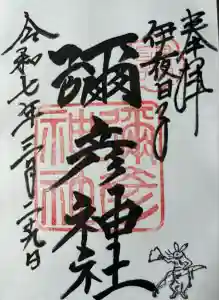 奉拝
伊夜日子
彌彦神社
令和七年三月二九日
彌彦
神社